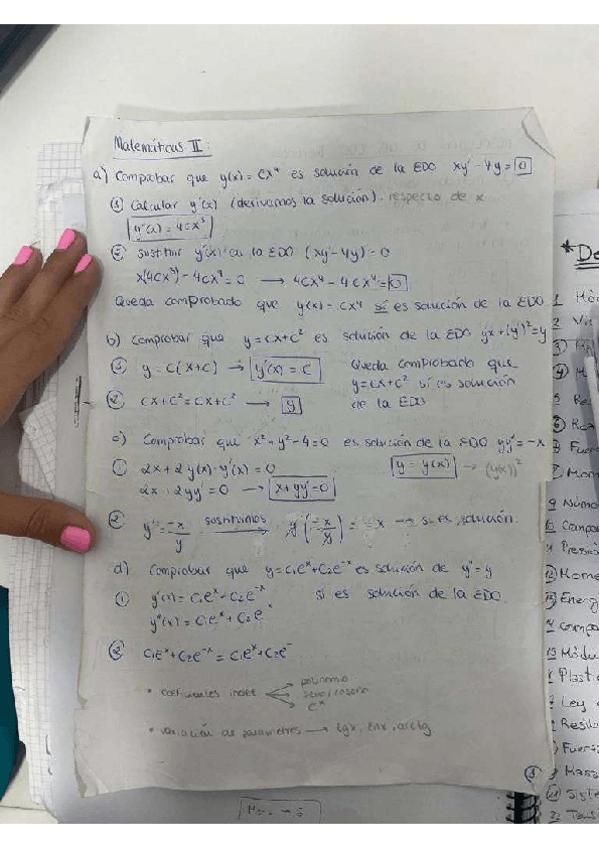 Matemáticas II:
a) Comprobar que y(x) = cx⁴ es solución de la EDO xy' - 4y = 0
① Calcular y'(x) (derivamos la solución). respecto de x
y'(x) = 4cx³
② Sustituir y'(x) en la EDO (xy' - 4y) = 0
x(4cx³) - 4cx⁴ = 0 → 4cx⁴ - 4cx⁴ = 0
Queda comprobado que y(x) = cx⁴ sí es solución de la EDO
b) Comprobar que y = cx + c² es solución de la EDO y'x + (y')² = y
① y = c(x+c) → y'(x) = c
Queda comprobado que
y = cx + c² sí es solución
de la EDO
② cx + c² = cx + c² → y
c) Comprobar que x² + y² - 4 = 0 es solución de la EDO yy' = -x
① 2x + 2y(x)·y'(x) = 0
y = y(x) → (y(x))²
2x + 2yy' = 0 → x + yy' = 0
② y' = -x/y sustituimos y(-x/y) = -x → sí es solución.
d) Comprobar que y = c₁eˣ + c₂e⁻ˣ es solución de y'' = y
① y'(x) = c₁eˣ - c₂e⁻ˣ
sí es solución de la EDO.
y''(x) = c₁eˣ + c₂e⁻ˣ
② c₁eˣ + c₂e⁻ˣ = c₁eˣ + c₂e⁻
• coeficientes indet
polinomio
seno/coseno
eˣ
• variación de parámetros → tgx, lnx, arctg
①
* De
1
2
③
④
5
⑥
7 Fuer
⑧ Mom
9 Número
Compo
Presió
⑫ Mome
⑬ Energ
Compo
Módu
Plasti
Ley
Resil
Fuerz
Masa
Siste
Tens